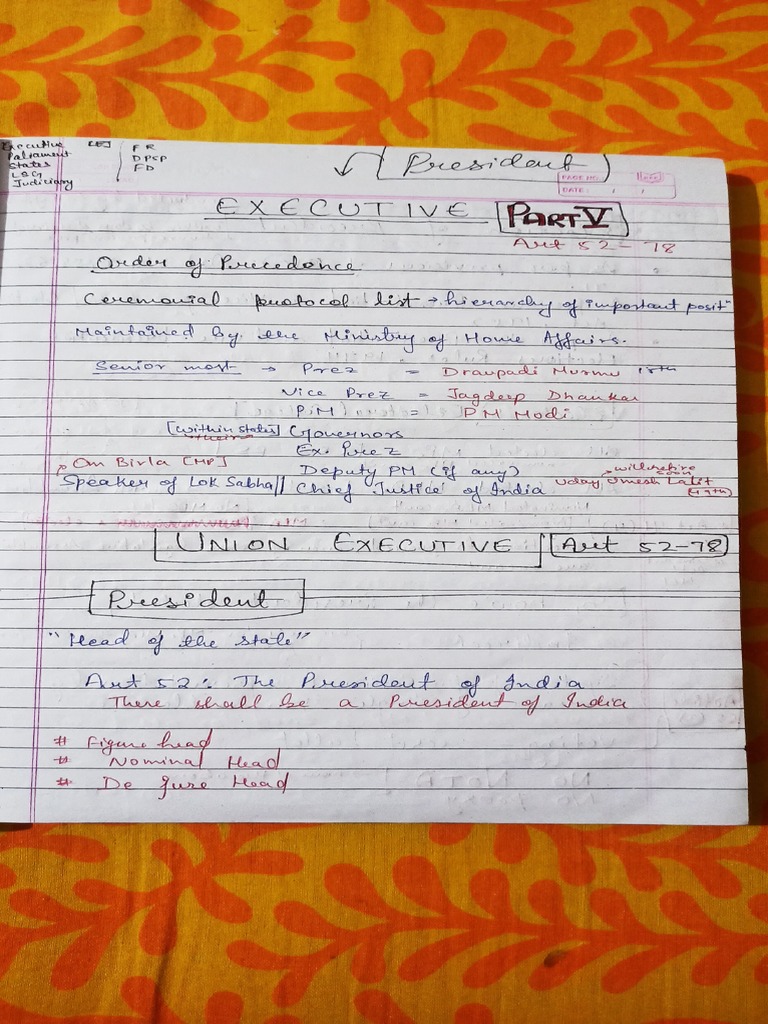 Executive
Paliament
States
LSG
Judiciary
FR
DPSP
FD
(President)
PAGE NO.
DATE: / /
EXECUTIVE PART V
Art 52-78
Order of Precedence
Ceremonial protocol list → hierarchy of important posit"
Maintained by the Ministry of Home Affairs.
Senior most → Prez = Draupadi Murmu 15th
Vice Prez = Jagdeep Dhankar
PM = PM Modi
[within states] Governors
Ex. Prez
Om Birla [MP] Deputy PM (if any) will retire soon
Speaker of Lok Sabha || Chief Justice of India Uday Umesh Lalit
(49th)
UNION EXECUTIVE Art 52-78
President
"Head of the state"
Art 52: The President of India
There shall be a President of India
# Figure head
# Nominal Head
# De Jure Head